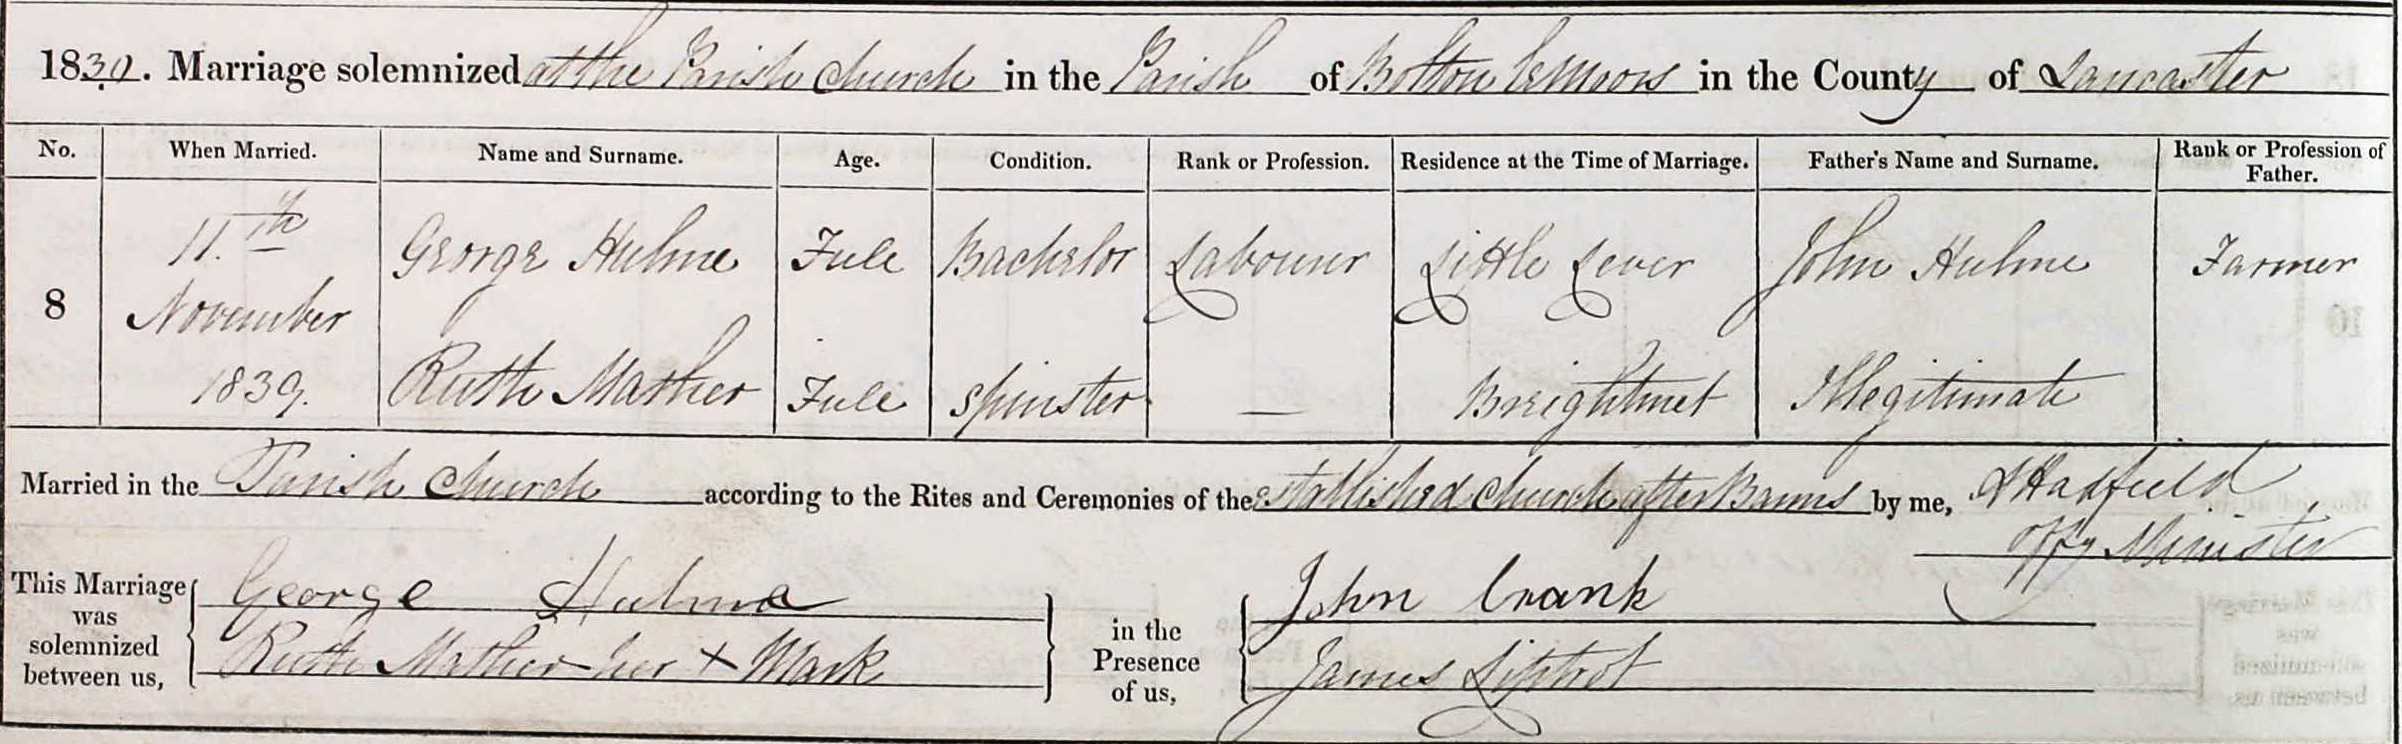 1839. Marriage solemnized at the Parish Church in the Parish of Bolton le Moors in the County of Lancaster
No. When Married. Name and Surname. Age. Condition. Rank or Profession. Residence at the Time of Marriage. Father's Name and Surname. Rank or Profession of Father.
8 11.th November 1839. George Hulme Full Bachelor Labourer Little Lever John Hulme Farmer
Ruth Mather Full Spinster — Breightmet Illegitimate
Married in the Parish Church according to the Rites and Ceremonies of the Established Church after Banns by me, Hadfield
Offg Minister
This Marriage was solemnized between us, George Hulme in the Presence of us, John Crank
Ruth Mather her X Mark James Liptrot